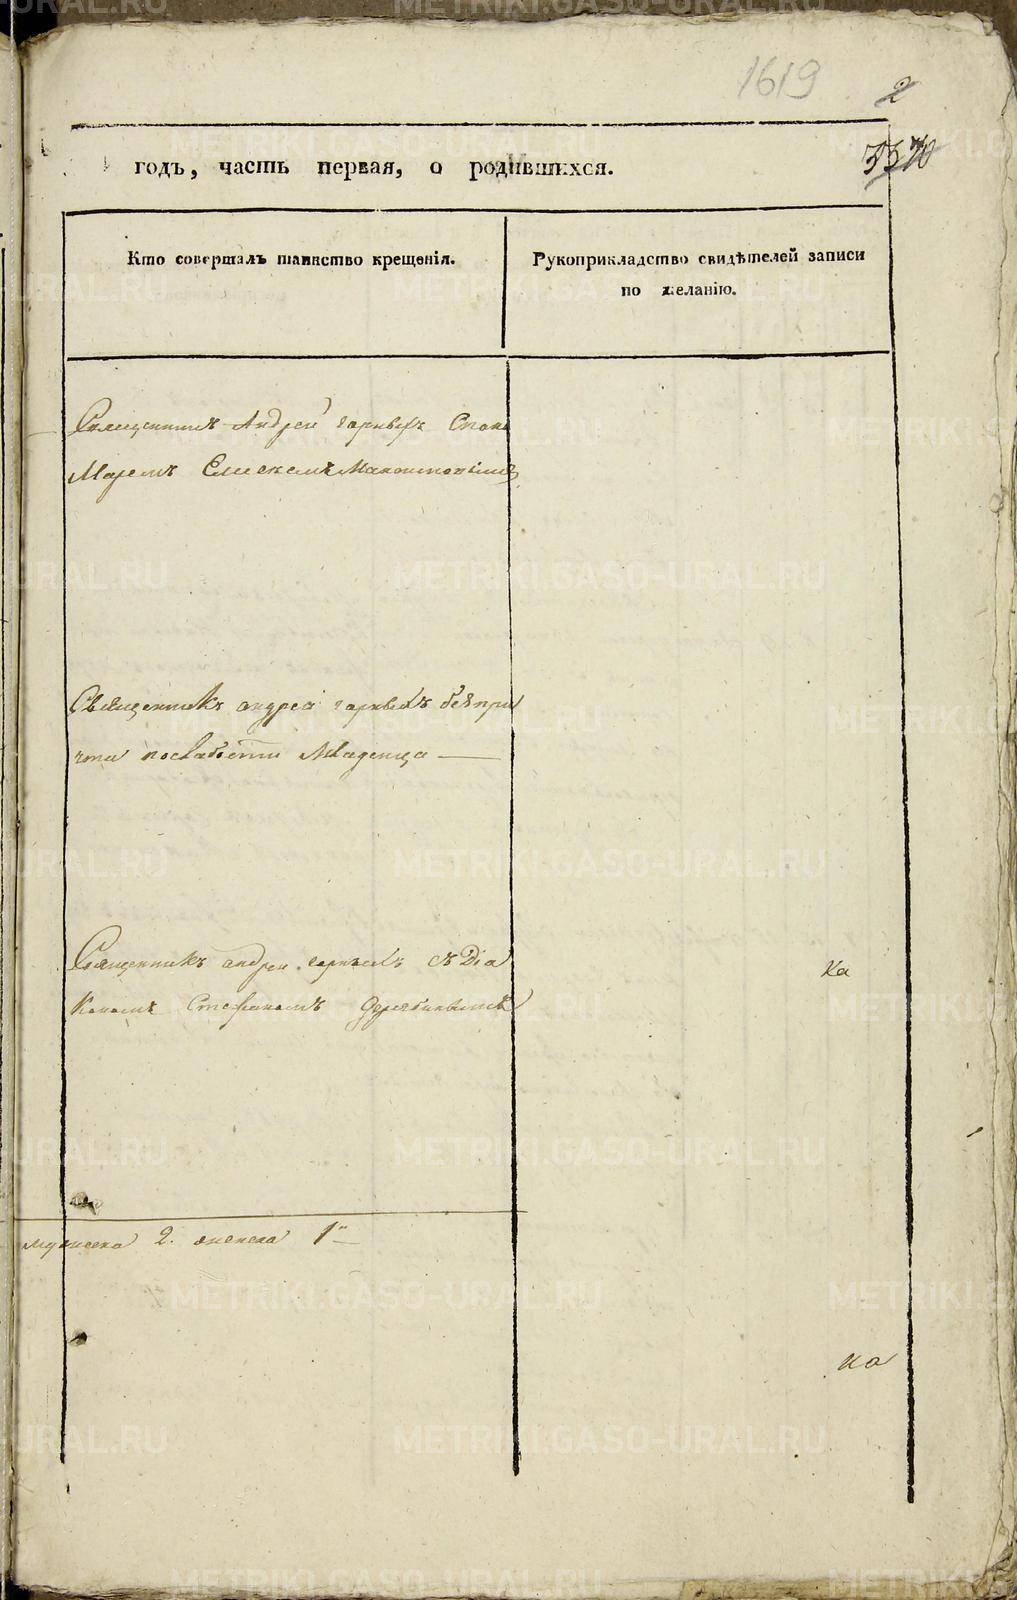 1619
2
годъ, часть первая, о родившихся.
Кто совершалъ таинство крещенія.
Рукоприкладство свидѣтелей записи
по желанію.
Священникъ Андрей Спона
Маремъ
Священникъ андрей безпри
чта послабости Младенца
Священникъ андрей съ Діа
Кономъ Стефаномъ
Ка
мужеска 2. женска 1
ка
METRIKI.GASO-URAL.RU